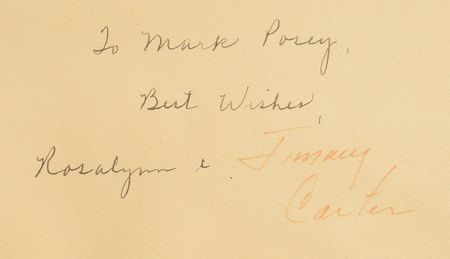 To Mark Posey,
Best Wishes,
Rosalynn & Jimmy
Carter